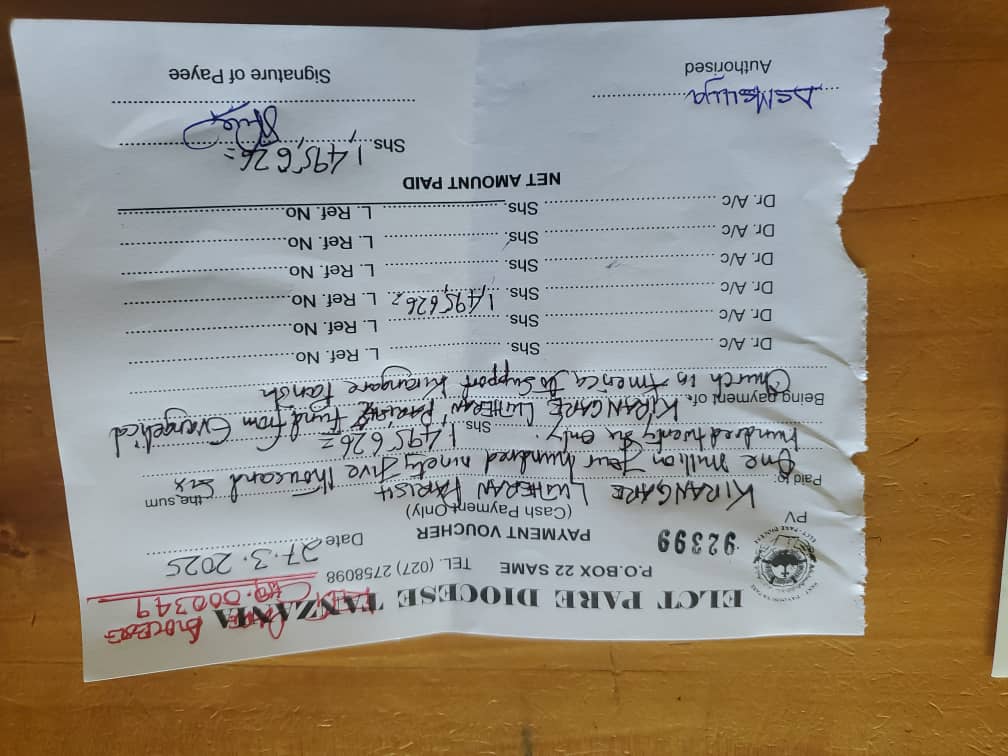 ELCT PARE DIOCESE TANZANIA
P.O.BOX 22 SAME TEL. (027) 2758098
CHQ. 000349
PV 92399
PAYMENT VOUCHER
(Cash Payment Only)
Date 27.3.2025
Paid to: KIRANGARE LUTHERAN PARISH the sum
One million four hundred ninety five thousand six
hundred twenty six only. Shs. 1,495,626=
Being payment of. KIRANGARE LUTHERAN PARISH Fund from Evangelical
Church in America to support Kirangare Parish
Dr. A/c Shs. L. Ref. No
Dr. A/c Shs. L. Ref. No.
Dr. A/c Shs. 1,495,626= L. Ref. No.
Dr. A/c Shs. L. Ref. No.
Dr. A/c Shs. L. Ref. No.
Dr. A/c Shs. L. Ref. No.
NET AMOUNT PAID
Shs. 1,495,626=
Authorised
Signature of Payee